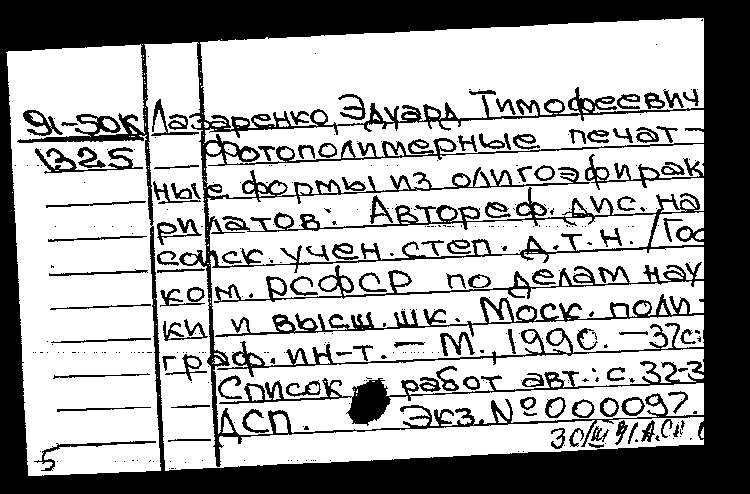 91-50К Лазаренко, Эдуард Тимофеевич
1325 Фотополимерные печат-
ные формы из олигоэфирак
рилатов: Автореф. дис. на
соиск. учен. степ. д.т.н. /Гос
ком. РСФСР по делам нау
ки и высш. шк., Моск. поли-
граф. ин-т. — М., 1990. — 37с
Список работ авт.: с. 32-3
ДСП. Экз. № 000097.
30/III 91.
5